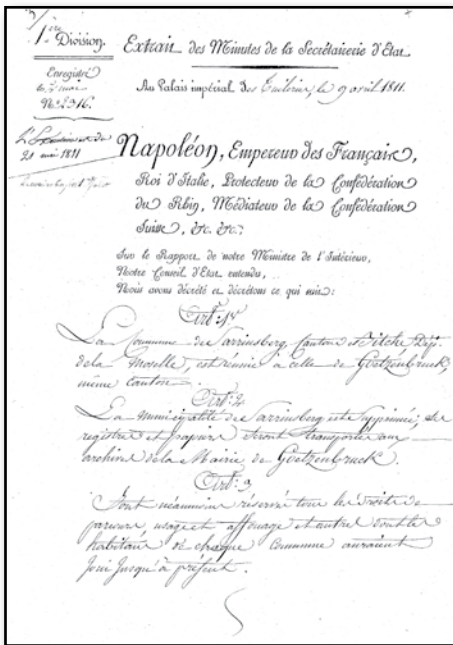 1ère Division.
Enregistré
le 2 mai
No. 2316.
21 mai 1811
Extrait des Minutes de la Secrétairerie d'Etat.
Au Palais impérial des Tuileries, le 9 avril 1811.
Napoléon, Empereur des Français,
Roi d'Italie, Protecteur de la Confédération
du Rhin, Médiateur de la Confédération
Suisse, &c. &c.
Sur le Rapport de notre Ministre de l'Intérieur,
Notre Conseil d'Etat entendu,
Nous avons décrété et décrétons ce qui suit :
Art. 1er
La Commune de Sarrinsberg, Canton de Bitche Dépt.
de la Moselle, est réunie à celle de Goetzenbruck,
même canton.
Art. 2
La municipalité de Sarrinsberg est supprimée, ses
registres et papiers seront transportés aux
archives de la Mairie de Goetzenbruck.
Art. 3
Sont néanmoins réservés tous les droits de
parcours, usage et affouage et autres dont les
habitans de chaque commune auraient
joui jusqu'à présent.